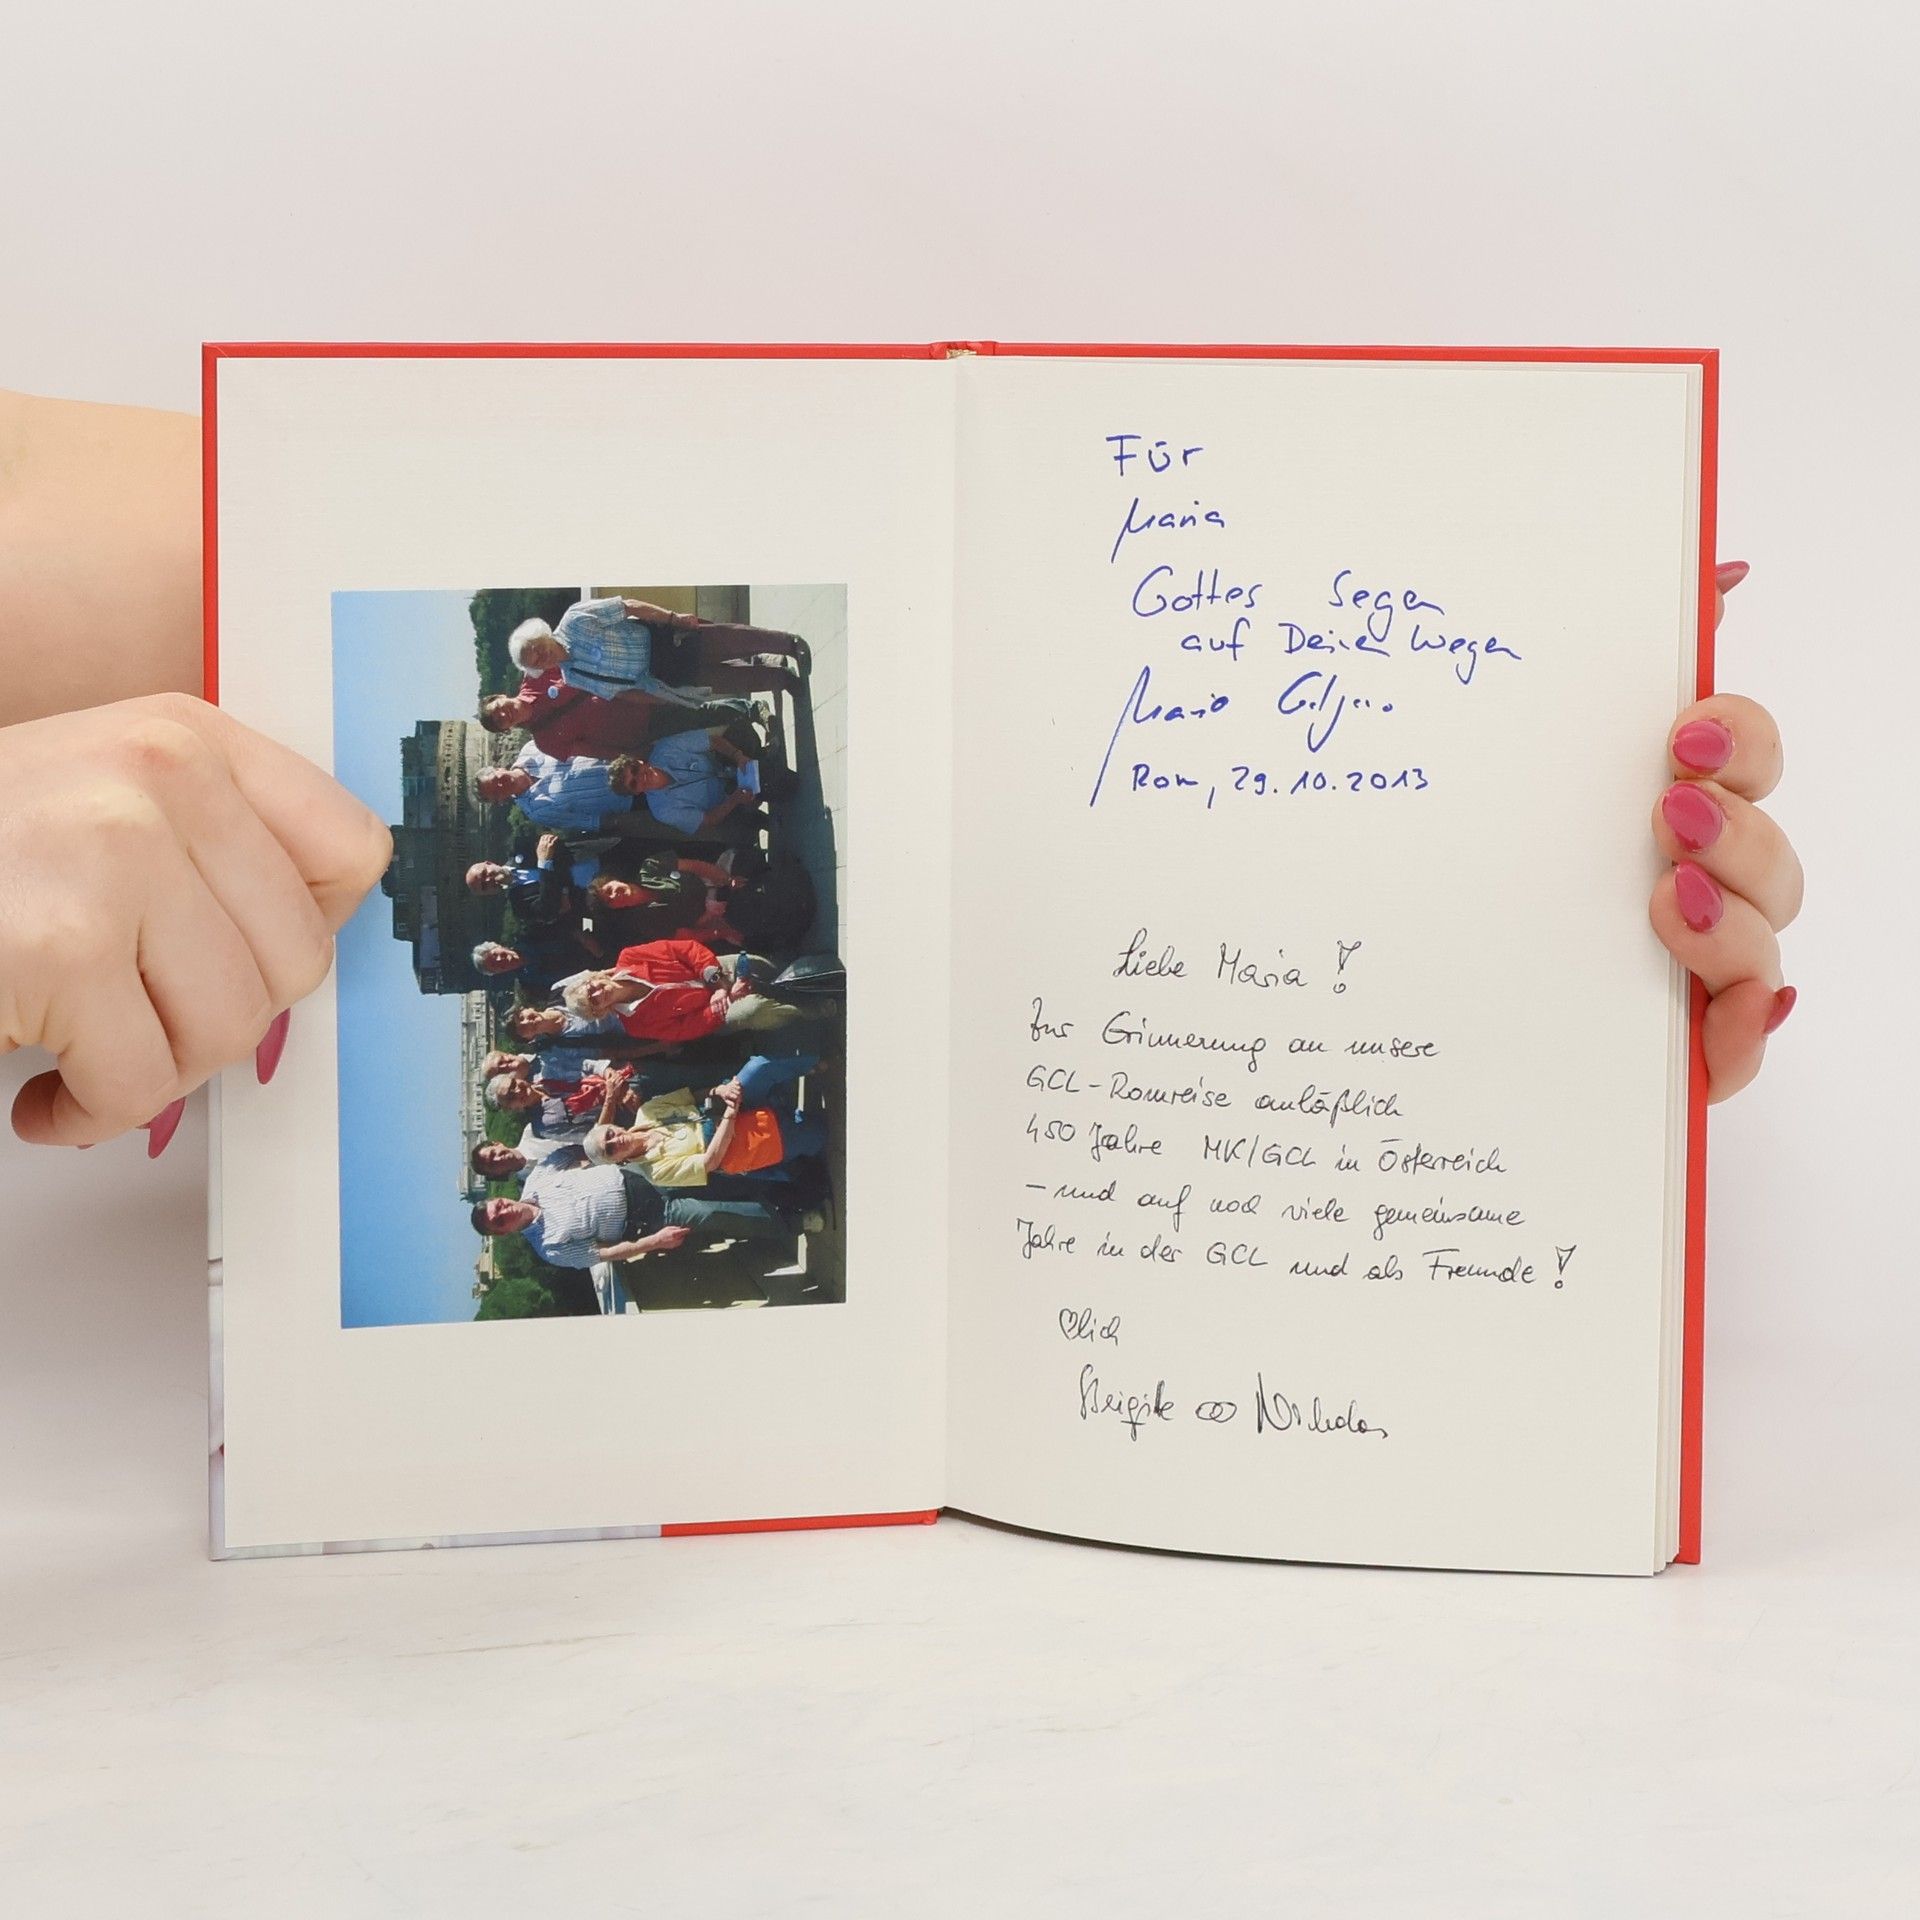 Für
Maria
Gottes Segen
auf Deinen Wegen
Mario
Rom, 29.10.2013
Liebe Maria!
Zur Erinnerung an unsere
GCL-Romreise anläßlich
450 Jahre MK/GCL in Österreich
- und auf noch viele gemeinsame
Jahre in der GCL und als Freunde!
♡lich
Brigitte ∞ Nikolas